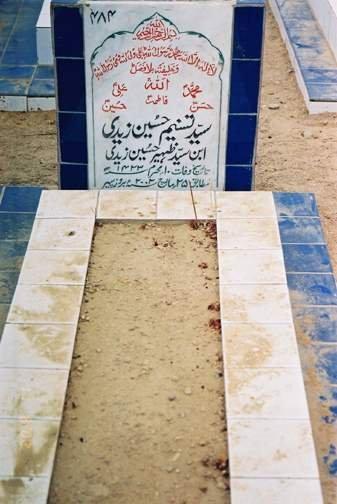 ۷۸۶
بسم اللہ الرحمن الرحیم
لا الہ الا اللہ محمد رسول اللہ علی ولی اللہ وصی رسول اللہ
وخلیفتہ بلا فصل
محمدؐ اللہ علیؑ
حسنؑ فاطمہؑ حسینؑ
سید تسنیم حسین زیدی
ابن سید ظہیر حسین زیدی
تاریخ وفات ۱۰ محرم ۱۴۲۳ھ
مطابق ۲۵ مارچ ۲۰۰۲ء بروز پیر